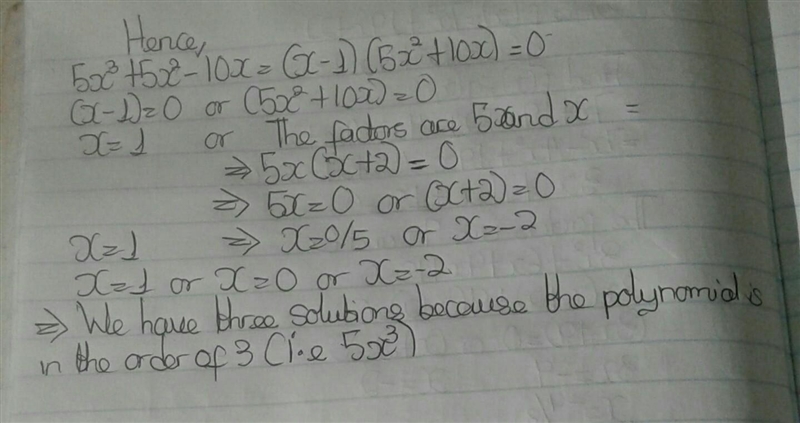 Hence,
5x³+5x²-10x=(x-1)(5x²+10x)=0
(x-1)=0 or (5x²+10x)=0
x=1 or The factors are 5x and x =
⇒ 5x(x+2)=0
⇒ 5x=0 or (x+2)=0
x=1 ⇒ x=0/5 or x=-2
x=1 or x=0 or x=-2
⇒ We have three solutions because the polynomial is
in the order of 3 (i.e 5x³)